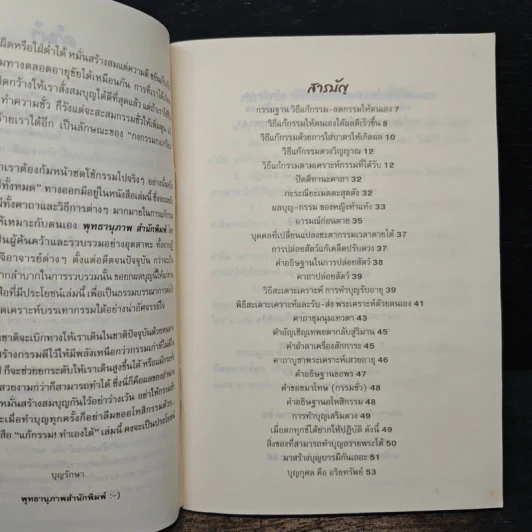 ผิดหรือใฝ่ต่ำได้ หมั่นสร้างสมแต่ความดี
ทำความชั่ว ก็รังแต่จะสะสมกรรมชั่วให้
ร้ายเราได้อีก เป็นลักษณะของ
เราต้องก้มหน้าชดใช้กรรมไปจริงๆ อย่าง
ทั้งหมด" ทางออกมีอยู่ในหนังสือเล่มนี้
ทั้งคาถาและวิธีการต่างๆ มากมายในการแก้กรรม
ให้เหมาะกับตนเอง พุทธานุภาพ สำนักพิมพ์
เป็นผู้ค้นคว้าและรวบรวมอย่างอุตสาหะ
อาจารย์ต่างๆ ตั้งแต่อดีตจนปัจจุบัน กว่าจะ
ลำบากในการรวบรวมนั้น ขอยกผลบุญนี้
ที่มีประโยชน์เล่มนี้ เพื่อเป็นธรรมบรรณาการ
เคราะห์บรรเทากรรมได้อย่างน่าอัศจรรย์ใจ
ชาติจะเบิกทางให้เราเดินในชาติปัจจุบัน
สร้างกรรมดีไว้ให้มีพลังเหนือกว่ากรรมเก่า
ก็จะช่วยยกระดับให้เราเดินสูงขึ้นได้
สวยงามกว่าก็สามารถทำได้ ซึ่งนี่ก็คือผลของ
หมั่นสร้างสมบุญกันไว้อย่าว่างเว้น อย่าให้กรรมชั่ว
เมื่อทำบุญทุกครั้งก็อย่าลืมขออโหสิกรรม
"แก้กรรม! ทำเองได้" เล่มนี้ คงจะเป็นประโยชน์
บุญรักษา
พุทธานุภาพสำนักพิมพ์ :-)
สารบัญ
กรรมฐาน วิธีแก้กรรม-ลดกรรมให้ตนเอง 7
วิธีแก้กรรมให้ตนเองได้ผลดีเร็วขึ้น 8
วิธีแก้กรรมด้วยการใส่บาตรให้เกิดผล 10
วิธีแก้กรรมดวงวิญญาณ 12
วิธีแก้กรรมตามเคราะห์กรรมที่ได้รับ 12
ปัตติทานะคาถา 32
กะระณียะเมตตะสุตตัง 32
ผลบุญ-กรรม ของหญิงทำแท้ง 32
อารมณ์ก่อนตาย 35
บุคคลที่เปลี่ยนแปลงชะตากรรมเวลาตายได้ 37
การปล่อยสัตว์แก้เคล็ดปรับดวง 37
คำอธิษฐานในการปล่อยสัตว์ 38
คาถาปล่อยสัตว์ 39
วิธีสะเดาะเคราะห์ การทำบุญรับอายุ 39
พิธีสะเดาะเคราะห์และรับ-ส่ง พระเคราะห์ด้วยตนเอง 41
คาถาชุมนุมเทวดา 43
คำอัญเชิญเทพยดากลับสู่วิมาน 43
คำอำลาเครื่องสักการะ 45
คาถาบูชาพระเคราะห์เสวยอายุ 46
คำอธิษฐานขอพร 47
คำขอขมาโทษ (กรรมชั่ว) 48
คำอธิษฐานอโหสิกรรม 48
การทำบุญเสริมดวง 49
เมื่อตกทุกข์ได้ยากให้ปฏิบัติ ดังนี้ 49
สิ่งของที่สามารถทำบุญถวายพระได้ 50
มาสร้างบุญบารมีกันเถอะ 51
บุญกุศล คือ อริยทรัพย์ 53